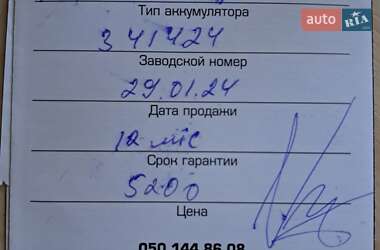 auto RIA
Тип аккумулятора
341424
Заводской номер
29.01.24
Дата продажи
12 міс
Срок гарантии
5200
Цена
050 144 86 08